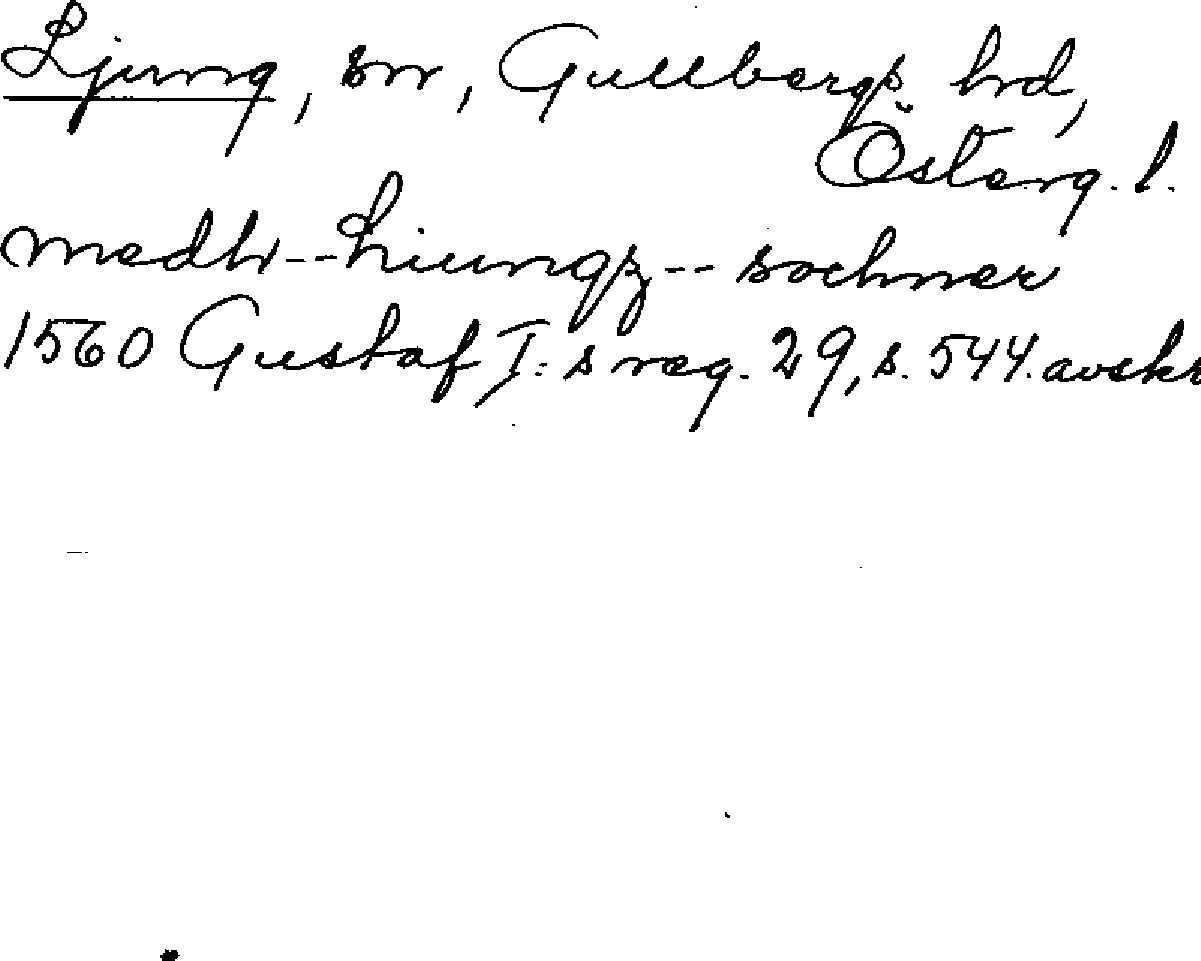 Ljung, sn, Gullbergs hd,
Österg. l.
medh -- Liungz -- sochner
1560 Gustaf I:s reg. 29, s. 544. avskr